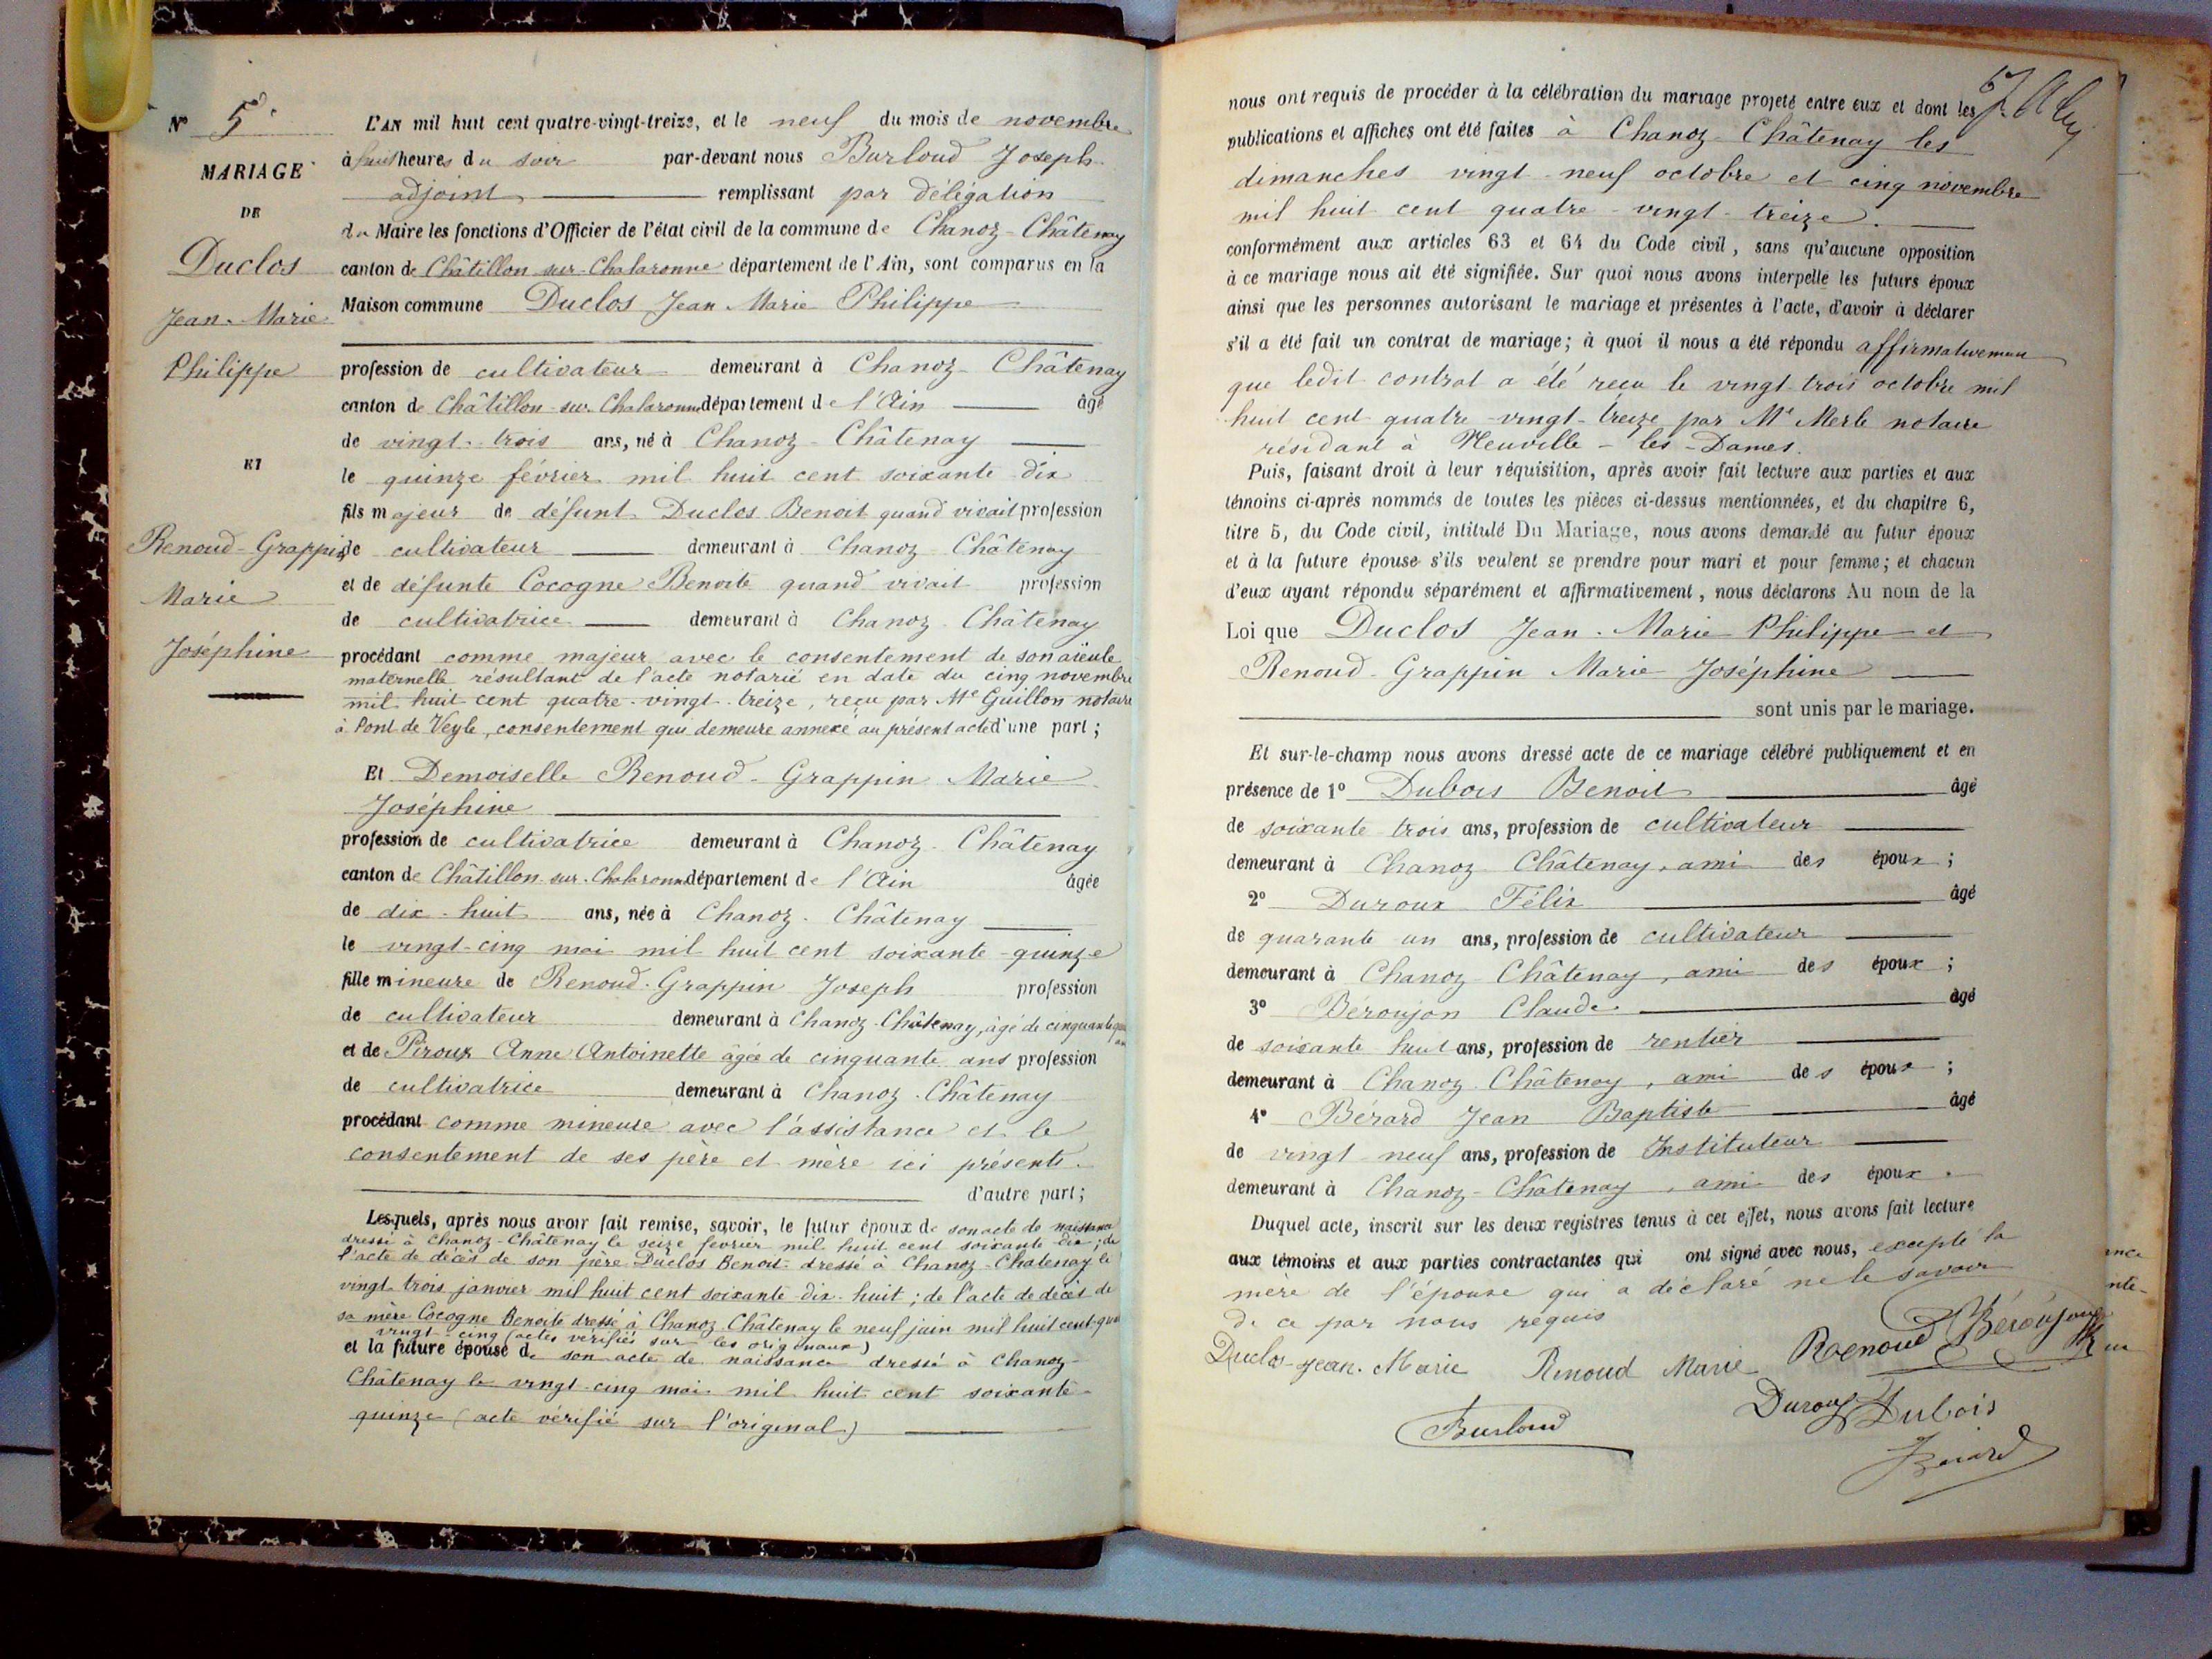 N° 5
MARIAGE
DE
Duclos
Jean-Marie
Philippe
ET
Renoud-Grappin
Marie
Joséphine
L'AN mil huit cent quatre-vingt-treize, et le neuf du mois de novembre
à huit heures du soir par-devant nous Burloud Joseph
adjoint remplissant par délégation
du Maire les fonctions d'Officier de l'état civil de la commune de Chanoz-Châtenay
canton de Châtillon-sur-Chalaronne département de l'Ain, sont comparus en la
Maison commune Duclos Jean-Marie Philippe
profession de cultivateur demeurant à Chanoz-Châtenay
canton de Châtillon-sur-Chalaronne département de l'Ain âgé
de vingt-trois ans, né à Chanoz-Châtenay
le quinze février mil huit cent soixante-dix
fils majeur de défunt Duclos Benoit quand vivait profession
de cultivateur demeurant à Chanoz-Châtenay
et de défunte Cocogne Benoite quand vivait profession
de cultivatrice demeurant à Chanoz-Châtenay
procédant comme majeur avec le consentement de son aïeule
maternelle résultant de l'acte notarié en date du cinq novembre
mil huit cent quatre-vingt-treize, reçu par Me Guillon notaire
à Pont de Veyle, consentement qui demeure annexé au présent acte d'une part;
Et Demoiselle Renoud-Grappin Marie
Joséphine
profession de cultivatrice demeurant à Chanoz-Châtenay
canton de Châtillon-sur-Chalaronne département de l'Ain âgée
de dix-huit ans, née à Chanoz-Châtenay
le vingt-cinq mai mil huit cent soixante-quinze
fille mineure de Renoud-Grappin Joseph profession
de cultivateur demeurant à Chanoz-Châtenay, âgé de cinquante
et de Piroux Anne Antoinette âgée de cinquante ans profession
de cultivatrice demeurant à Chanoz-Châtenay
procédant comme mineure avec l'assistance et le
consentement de ses père et mère ici présents.
d'autre part;
Lesquels, après nous avoir fait remise, savoir, le futur époux de son acte de naissance
dressé à Chanoz-Châtenay le seize février mil huit cent soixante-dix; de
l'acte de décès de son père Duclos Benoit dressé à Chanoz-Chatenay le
vingt trois janvier mil huit cent soixante-dix-huit; de l'acte de décès de
sa mère Cocogne Benoite dressé à Chanoz-Châtenay le neuf juin mil huit cent
vingt-cinq (actes vérifiés sur les originaux)
et la future épouse de son acte de naissance dressé à Chanoz-
Châtenay le vingt-cinq mai mil huit cent soixante-
quinze (acte vérifié sur l'original)
nous ont requis de procéder à la célébration du mariage projeté entre eux et dont les
publications et affiches ont été faites à Chanoz-Châtenay les
dimanches vingt-neuf octobre et cinq novembre
mil huit cent quatre-vingt-treize.
conformément aux articles 63 et 64 du Code civil, sans qu'aucune opposition
à ce mariage nous ait été signifiée. Sur quoi nous avons interpellé les futurs époux
ainsi que les personnes autorisant le mariage et présentes à l'acte, d'avoir à déclarer
s'il a été fait un contrat de mariage; à quoi il nous a été répondu affirmativement
que ledit contrat a été reçu le vingt-trois octobre mil
huit cent quatre-vingt-treize par Me Merle notaire
résidant à Neuville-les-Dames.
Puis, faisant droit à leur réquisition, après avoir fait lecture aux parties et aux
témoins ci-après nommés de toutes les pièces ci-dessus mentionnées, et du chapitre 6,
titre 5, du Code civil, intitulé Du Mariage, nous avons demandé au futur époux
et à la future épouse s'ils veulent se prendre pour mari et pour femme; et chacun
d'eux ayant répondu séparément et affirmativement, nous déclarons Au nom de la
Loi que Duclos Jean-Marie Philippe et
Renoud-Grappin Marie Joséphine
sont unis par le mariage.
Et sur-le-champ nous avons dressé acte de ce mariage célébré publiquement et en
présence de 1° Dubois Benoit âgé
de soixante trois ans, profession de cultivateur
demeurant à Chanoz-Châtenay, ami des époux;
2° Duroux Félix âgé
de quarante un ans, profession de cultivateur
demeurant à Chanoz-Châtenay, ami des époux;
3° Béroujon Claude âgé
de soixante-huit ans, profession de rentier
demeurant à Chanoz-Châtenay, ami des époux;
4° Bérard Jean Baptiste âgé
de vingt-neuf ans, profession de Instituteur
demeurant à Chanoz-Châtenay, ami des époux.
Duquel acte, inscrit sur les deux registres tenus à cet effet, nous avons fait lecture
aux témoins et aux parties contractantes qui ont signé avec nous, excepté la
mère de l'épouse qui a déclaré ne le savoir
de ce par nous requis
Duclos Jean-Marie Renoud Marie Renoud Béroujon
Duroux Dubois
Burloud
Bérard